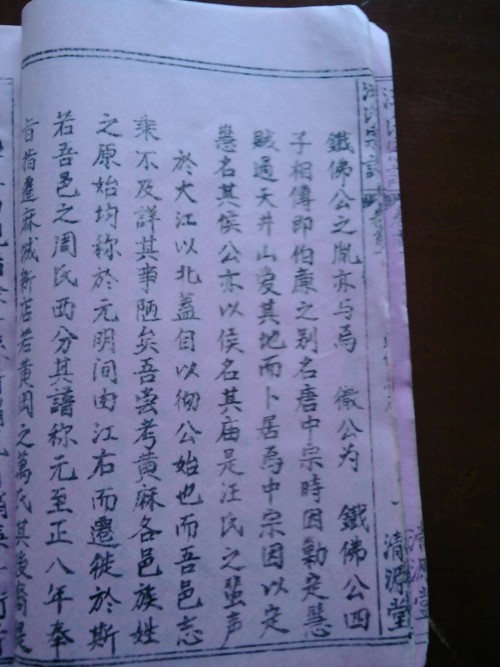 汪氏宗譜
清源堂
鐵佛公之胤亦与焉　徽公为　鐵佛公四
子相傳即伯廉之别名唐中宗時因勦定慧
賊過天井山爱其地而卜居焉中宗因以定
慧名其侯公亦以侯名其庙是汪氏之蜚声
於大江以北蓋自以彻公始也而吾邑志
乘不及詳其事陋矣吾尝考黄麻各邑族姓
之原始均称於元明间由江右而遷徙於斯
若吾邑之周氏西分其譜称元至正八年奉
旨指遷麻城新店若黄岡之萬氏其後裔是